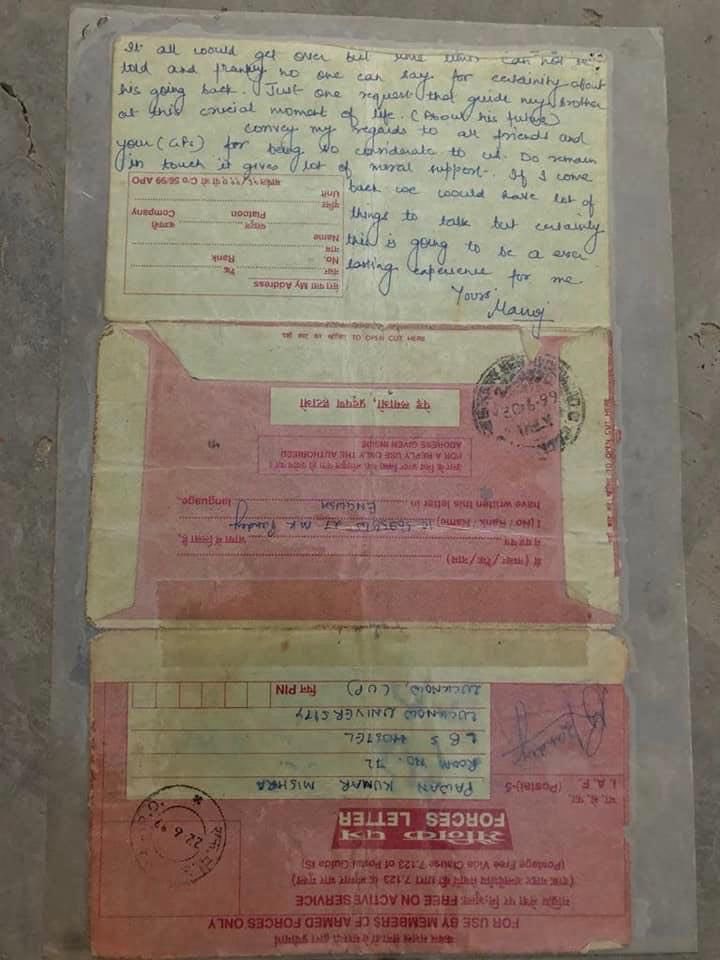 It all would get over but can not be
told and franky no one can say for certainity about
his going back. Just one request that guide my brother
at this crucial moment of life. (About his future)
convey my regards to all friends and
your (GFs) for being so considerate to us. Do remain
in touch it gives lot of moral support. If I come
back we would have lot of
things to talk but certainty
this is going to be a ever
lasting experience for me
Yours
Manoj
मेरा पता My Address
नम्बर रैंक
No. Rank
नाम
Name
प्लाटून कम्पनी
Platoon Company
यूनिट
Unit
C/o 56/99 APO
TO OPEN CUT HERE
TO OPEN CUT HERE
पेड़ लगाओ, प्रदूषण हटाओ
FOR A REPLY USE ONLY THE AUTHORISED
ADDRESS GIVEN INSIDE
मैं (नम्बर/रैंक/नाम)
ने यह पत्र भाषा में लिखा है.
I (No/Rank/Name) LT MK Pandey
have written this letter in ENGLISH language.
केवल सशस्त्र सेना के सदस्यों द्वारा प्रयोगार्थ
FOR USE BY MEMBERS OF ARMED FORCES ONLY
FREE ON ACTIVE SERVICE
(Postage Free Vide Clause 7.123 of Postal Guide IS)
सैनिक पत्र
FORCES LETTER
I. A. F. (Postal)-5
PAWAN KUMAR MISHRA
ROOM NO. 72
L B S HOSTEL
LUCKNOW UNIVERSITY
LUCKNOW, (UP)
पिन PIN
Pandey
22.6.99